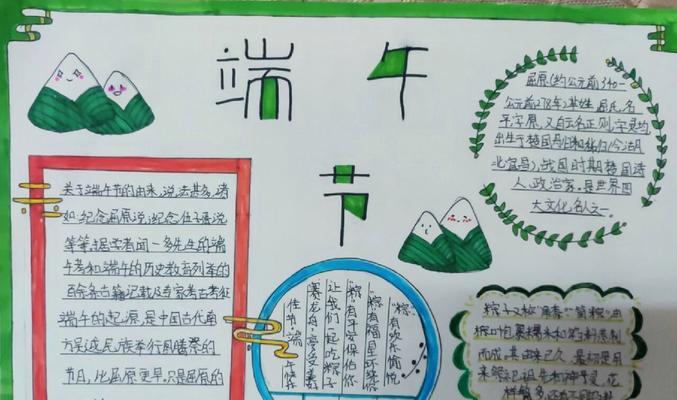 端午
节
关于端午节的由来,说法甚多,诸
如:纪念屈原说,纪念伍子胥说
等等,据学者闻一多先生的端
午考和端午的历史教育列举的
百余条古籍记载及专家考古考征
端午的起源,是中国古代南
方吴越民族举行图腾祭的
节日,比屈原更早。只是屈原的
屈原(约公元前340-
公元前278年)芈姓,屈氏,名
平,字原,又自云名正则,字灵均
出生于楚国丹阳秭归(今湖
北宜昌),战国时期楚国诗
人、政治家,是世界四
大文化名人之一
"粽"有欢乐
"粽"有福星环绕你
"粽"有平安保佑你
让我们一起吃粽子
赛龙舟,享受着
佳节 端午快乐
粽子又称"角黍""筒粽"由
粽叶包裹糯米和馅料蒸制
而成,其由来已久,最初是用
来祭祀祖先和神灵,花
样繁多